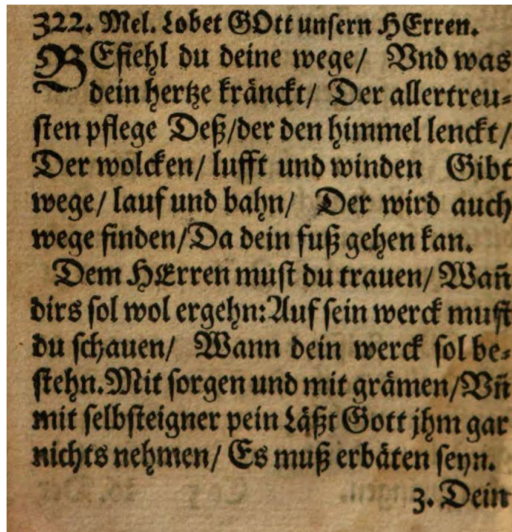 322. Mel. Lobet GOtt unsern HErren.
BEfiehl du deine wege/ Vnd was
dein hertze kränckt/ Der allertreu-
sten pflege Deß/der den himmel lenckt/
Der wolcken/ lufft und winden Gibt
wege/ lauf und bahn/ Der wird auch
wege finden/Da dein fuß gehen kan.
Dem HErren must du trauen/ Wañ
dirs sol wol ergehn:Auf sein werck must
du schauen/ Wann dein werck sol be-
stehn.Mit sorgen und mit grämen/Vñ
mit selbsteigner pein Läßt Gott jhm gar
nichts nehmen/ Es muß erbäten seyn.
3. Dein